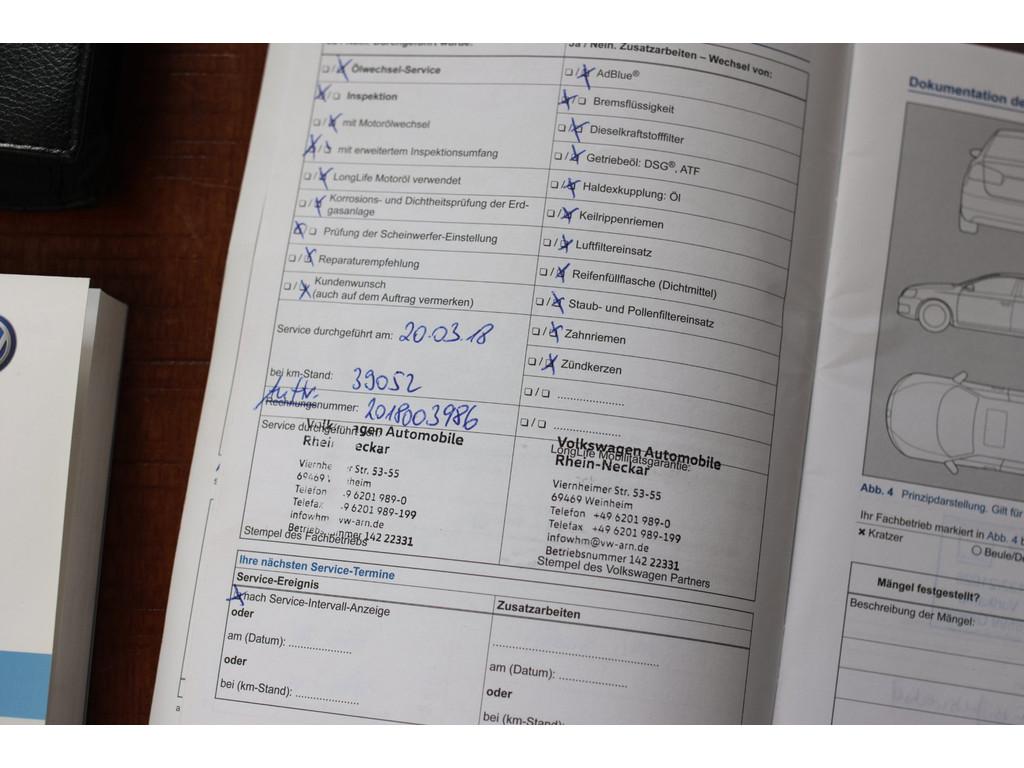 Ja / Nein. Zusatzarbeiten – Wechsel von:
Ölwechsel-Service
Inspektion
mit Motorölwechsel
mit erweitertem Inspektionsumfang
LongLife Motoröl verwendet
Korrosions- und Dichtheitsprüfung der Erd-
gasanlage
Prüfung der Scheinwerfer-Einstellung
Reparaturempfehlung
Kundenwunsch
(auch auf dem Auftrag vermerken)
AdBlue®
Bremsflüssigkeit
Dieselkraftstofffilter
Getriebeöl: DSG®, ATF
Haldexkupplung: Öl
Keilrippenriemen
Luftfiltereinsatz
Reifenfüllflasche (Dichtmittel)
Staub- und Pollenfiltereinsatz
Zahnriemen
Zündkerzen
Service durchgeführt am: 20.03.18
bei km-Stand: 39052
Auftr.
Rechnungsnummer: 2018003986
Service durchgeführt
Volkswagen Automobile
Rhein-Neckar
Viernheimer Str. 53-55
69469 Weinheim
Telefon +49 6201 989-0
Telefax +49 6201 989-199
infowhm@vw-arn.de
Betriebsnummer 142 22331
Stempel des Fachbetriebs
LongLife Mobilitätsgarantie:
Volkswagen Automobile
Rhein-Neckar
Viernheimer Str. 53-55
69469 Weinheim
Telefon +49 6201 989-0
Telefax +49 6201 989-199
infowhm@vw-arn.de
Betriebsnummer 142 22331
Stempel des Volkswagen Partners
Ihre nächsten Service-Termine
Service-Ereignis
nach Service-Intervall-Anzeige
oder
am (Datum): ....................
oder
bei (km-Stand): ....................
Zusatzarbeiten
am (Datum): ....................
oder
bei (km-Stand):
Dokumentation
Abb. 4 Prinzipdarstellung. Gilt für
Ihr Fachbetrieb markiert in Abb. 4
Kratzer
Mängel festgestellt?
Beschreibung der Mängel: